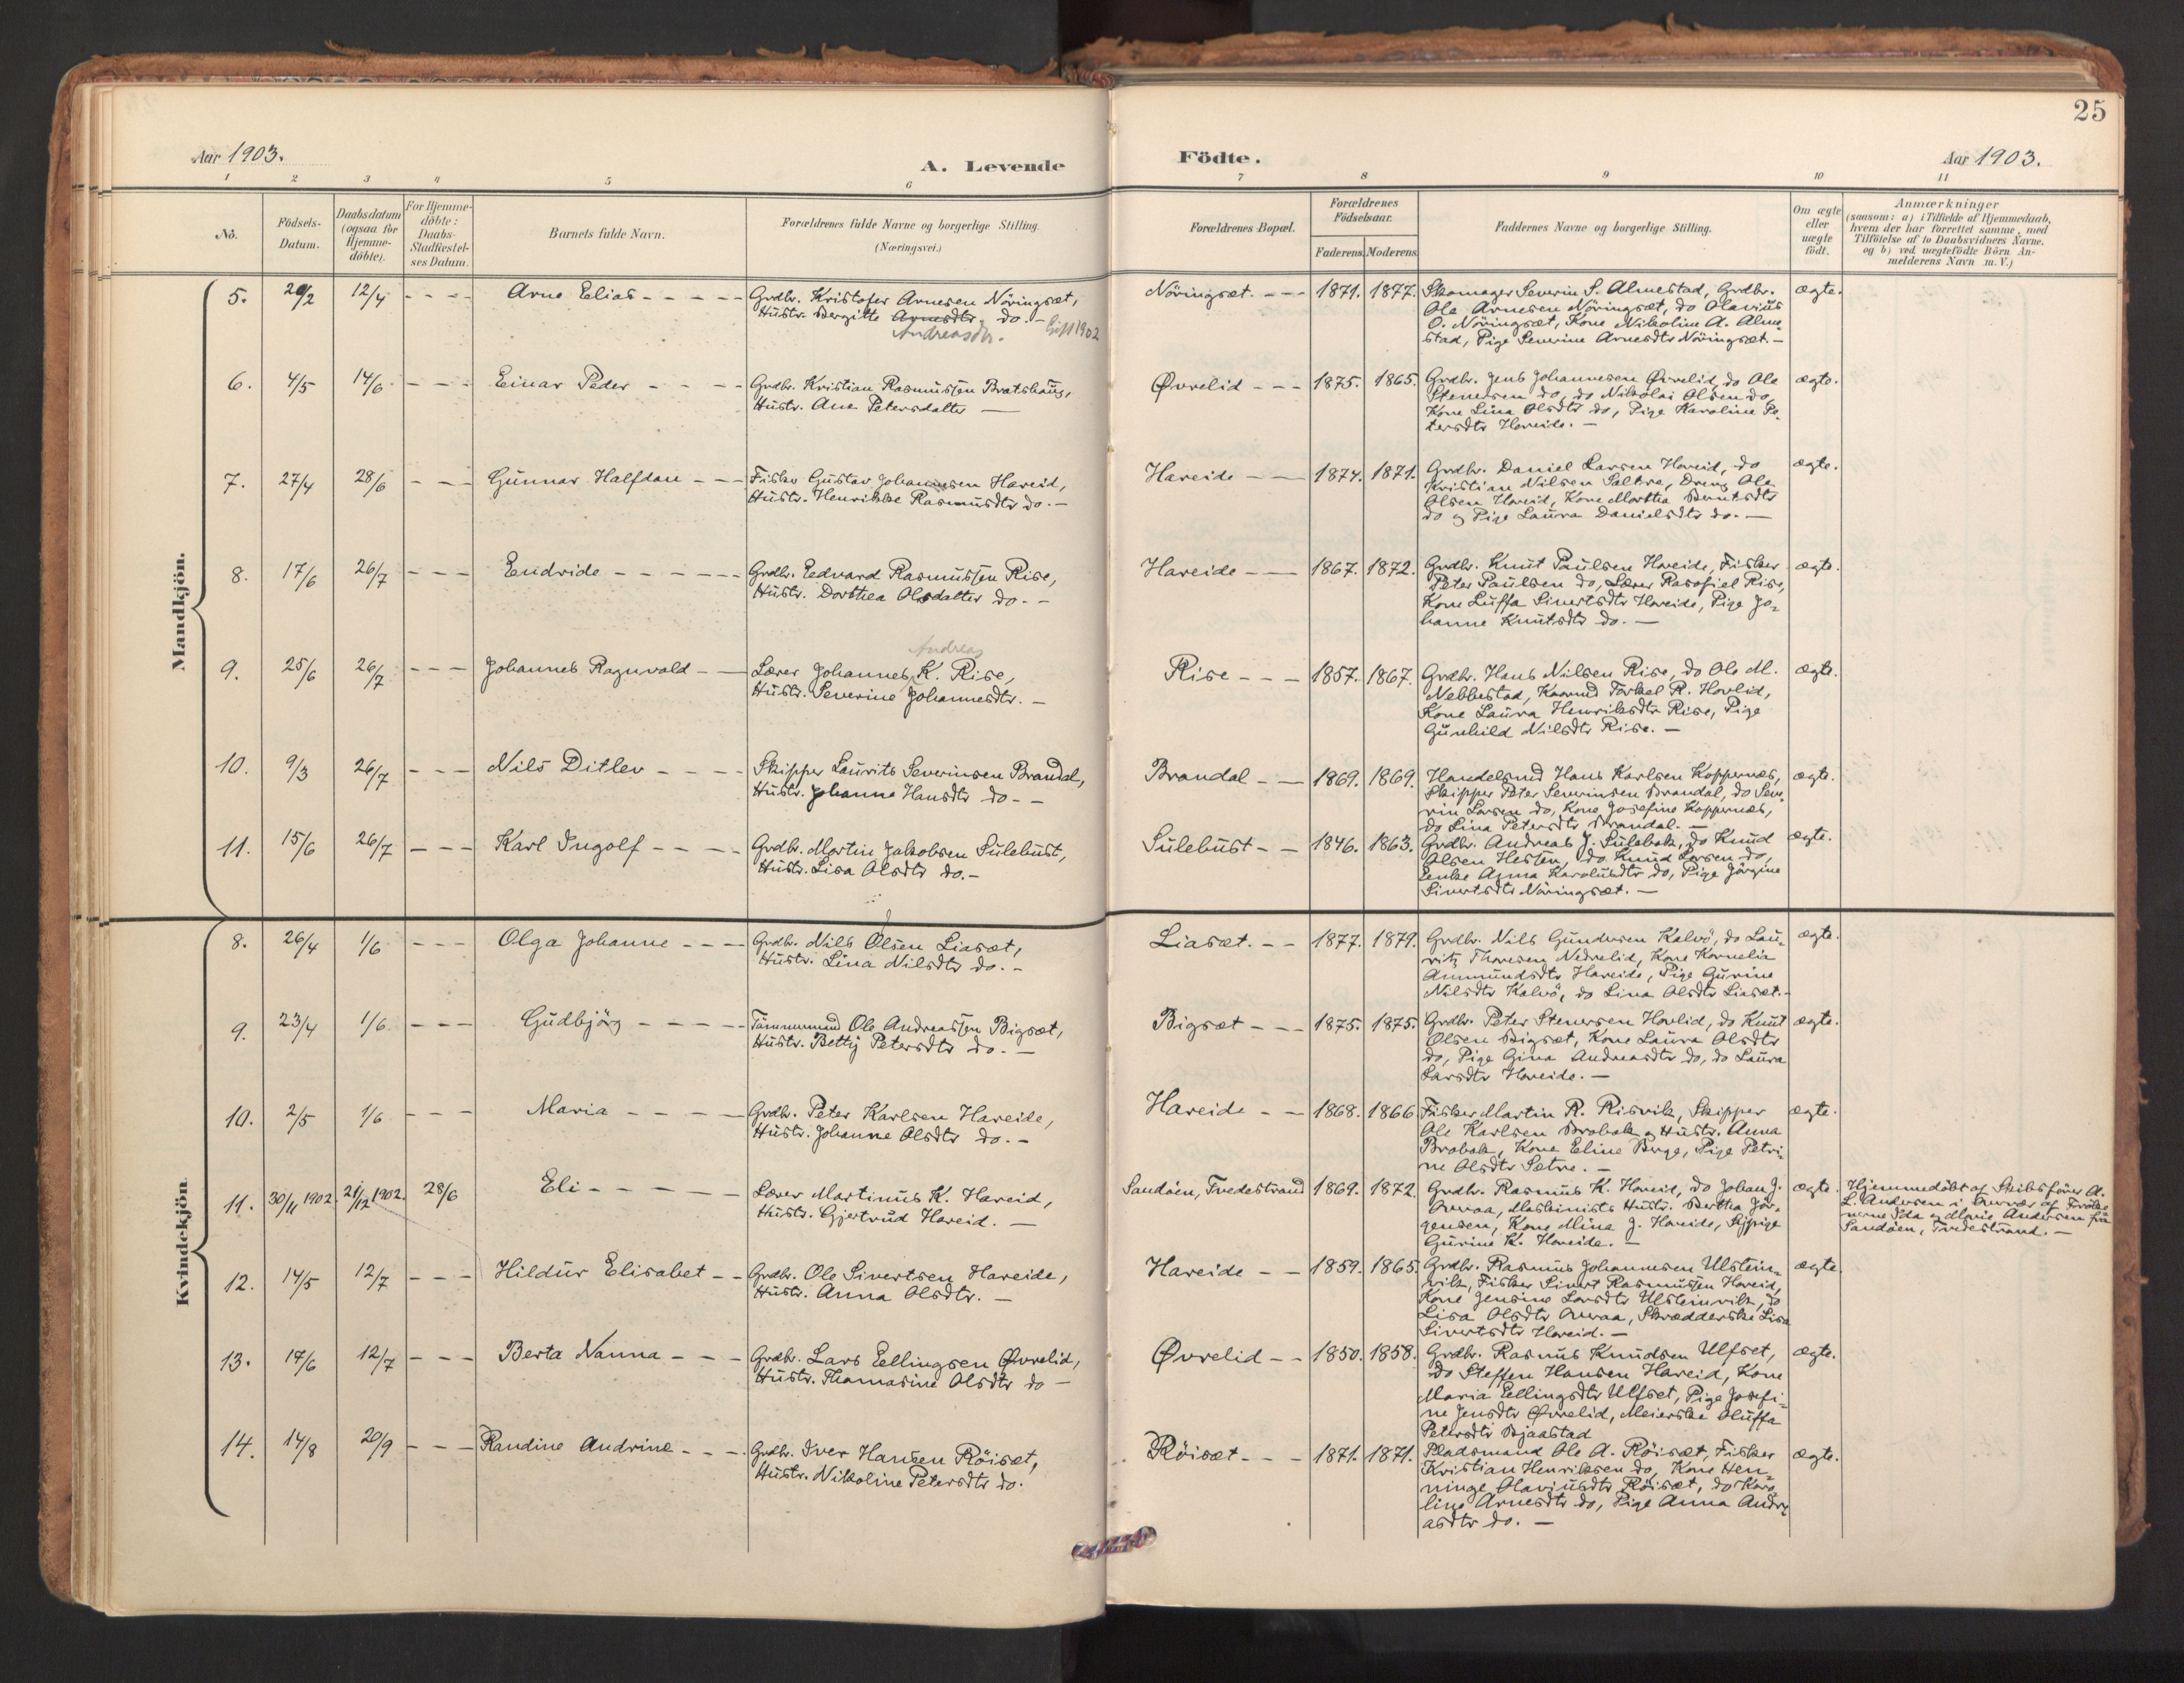 25
Aar 1903.
A. Levende
Födte.
Aar 1903.
1 2 3 4 5 6 7 8 9 10 11
No.
Födsels-
Datum.
Daabsdatum
(ogsaa for
Hjemme-
döbte).
For Hjemme-
döbte:
Daabs-
Stadfæstel-
ses Datum.
Barnets fulde Navn.
Forældrenes fulde Navne og borgerlige Stilling.
(Næringsvei.)
Forældrenes Bopæl.
Forældrenes
Födselsaar.
Faderens. Moderens.
Faddernes Navne og borgerlige Stilling.
Om ægte
eller
uægte
födt.
Anmærkninger
(saasom: a) i Tilfælde af Hjemmedaab,
hvem der har forrettet samme, med
Tilföielse af to Daabsvidners Navne.
og b) ved uægtefödte Börn An-
melderens Navn m. V.)
Mandkjön.
5. 20/2 12/4 - - - - Arne Elias - - - - -
Grdbr. Kristofer Arnesen Nöringsæt,
Hustr. Bergitte Arnesdtr. do. -
Andreasdtr. Gift 1902
Nöringsæt. - - - 1871. 1877.
Skomager Severin S. Almestad, Grdbr.
Ole Arnesen Nöringsæt, do Olavius
O. Nöringsæt, Kone Nikoline A. Alme-
stad, Pige Severine Arnesdtr Nöringsæt. -
ægte.
6. 4/5 14/6 - - - Einar Peder - - - - -
Grdbr. Kristian Rasmussen Bratshaug,
Hustr. Ane Petersdatter -
Øvrelid - - - 1875. 1865.
Grdbr. Jens Johannesen Øvrelid, do Ole
Stenersen do, do Nikolai Olsen do,
Kone Lina Olsdtr do, Pige Karoline Pe-
tersdtr Hareide. -
ægte.
7. 27/4 28/6 - - - Gunnar Halfdan - - -
Fisker Gustav Johannesen Hareid,
Hustr. Henrikke Rasmusdtr do. -
Hareide - - - 1874. 1871.
Grdbr. Daniel Larsen Hareid, do
Kristian Nilsen Saltre, Dreng Ole
Olsen Hareid, Kone Martha Berntsdtr
do og Pige Laura Danielsdtr do. -
ægte.
8. 17/6 26/7 - - - Endride - - - - - -
Grdbr. Edvard Rasmussen Rise,
Hustr. Dorthea Olsdatter do. -
Hareide - - - 1867. 1872.
Grdbr. Knut Paulsen Hareide, Fisker
Peter Paulsen do, Lærer Rasofiel Rise,
Kone Luffa Sivertsdtr Hareide, Pige Jo-
hanne Knutsdtr do. -
ægte.
9. 25/6 26/7 - - - Johannes Ragnvald - -
Andreas
Lærer Johannes K. Rise,
Hustr. Severine Johannesdtr. -
Rise - - - 1857. 1867.
Grdbr. Hans Nilsen Rise, do Ole M.
Nebbestad, Kaarmd Torkel R. Hovlid,
Kone Laura Henriksdtr Rise, Pige
Gunhild Nilsdtr Rise. -
ægte.
10. 9/3 26/7 - - - Nils Ditlev - - - -
Skipper Laurits Severinsen Brandal,
Hustr. Johanne Hansdtr do. -
Brandal - - 1869. 1869.
Handelsmd Hans Karlsen Koppernæs,
Skipper Peter Severinsen Brandal, do Seve-
rin Larsen do, Kone Josefine Koppernæs,
do Lina Petersdtr Brandal. -
ægte.
11. 15/6 26/7 - - - Karl Ingolf - - - -
Grdbr. Martin Jakobsen Sulebust,
Hustr. Lisa Olsdtr do. -
Sulebust - - 1846. 1863.
Grdbr. Andreas J. Sulebak, do Knud
Olsen Hestén, do Knud Larsen do,
Enke Anna Karolusdtr do, Pige Jörgine
Sivertsdtr Nöringsæt. -
ægte.
Kvindekjön.
8. 26/4 1/6 - - - Olga Johanne - - -
Grdbr. Nils Olsen Liasæt,
Hustr. Lina Nilsdtr do. -
Liasæt. - - 1877. 1879.
Grdbr. Nils Gundersen Kalvö, do Lau-
ritz Thoresen Nedrelid, Kone Kornelia
Ammundsdtr Hareide, Pige Gurine
Nilsdtr Kalvö, do Lina Olsdtr Liasæt. -
ægte.
9. 23/4 1/6. - - - Gudbjörg - - - - -
Tömmermand Ole Andreassen Bigsæt,
Hustr. Betty Petersdtr do. -
Bigsæt - - - 1875. 1875.
Grdbr. Peter Stenersen Hovlid, do Knut
Olsen Bigsæt, Kone Laura Olsdtr
do, Pige Gina Andreasdtr do, do Laura
Larsdtr Hareide. -
ægte.
10. 2/5 1/6 - - - Maria - - - -
Grdbr. Peter Karlsen Hareide,
Hustr. Johanne Olsdtr do. -
Hareide - - 1868. 1866
Fisker Martin R. Risvik, Skipper
Ole Karlsen Brobak og Hustr. Anna
Brobak, Kone Eline Berge, Pige Petri-
ne Olsdtr Sætre. -
ægte.
11. 30/11 1902. 21/12 1902. 28/6 Eli - - - - -
Lærer Martinus K. Hareid,
Hustr. Gjertrud Hareid. -
Sandöen, Tvedestrand 1869. 1872.
Grdbr. Rasmus K. Hareid, do Johan J.
Overaa, Maskinists Hustr. Bertha Jör-
gensen, Kone Mina J. Hareide, Pige
Gurine K. Hareide. -
ægte.
Hjemmedöbt af Skibsförer A.
L. Andersen i Nærvær af Fröke-
nerne Ida og Marie Andersen fra
Sandöen, Tvedestrand. -
12. 14/5 12/7 - - - Hildur Elisabet - -
Grdbr. Ole Sivertsen Hareide,
Hustr. Anna Olsdtr. -
Hareide - - 1859. 1865.
Grdbr. Rasmus Johannesen Ulstein-
vik, Fisker Sivert Rasmussen Hareid,
Kone Jensine Larsdtr Ulsteinvik, do
Lisa Olsdtr Overaa, Skrædderske Lisa
Sivertsdtr Hareid. -
ægte.
13. 17/6 12/7 - - - Berta Nanna - - -
Grdbr. Lars Eellingsen Øvrelid,
Hustr. Thomasine Olsdtr do -
Øvrelid - - 1850. 1858.
Grdbr. Rasmus Knudsen Ulfset,
do Steffen Hansen Hareid, Kone
Maria Eellingsdtr Ulfset, Pige Josefi-
ne Jensdtr Øvrelid, Meierske Oluffa
Petersdtr Bjaastad
ægte.
14. 14/8 20/9 - - - Randine Andrine - - -
Grdbr. Iver Hansen Röisæt,
Hustr. Nikoline Petersdtr do.
Röisæt - - - 1871. 1871.
Pladsmand Ole A. Röisæt, Fisker
Kristian Henriksen do, Kone Hen-
ninge Olaviusdtr Röisæt, do Karo-
line Arnesdtr do, Pige Anna Andre-
asdtr do. -
ægte.